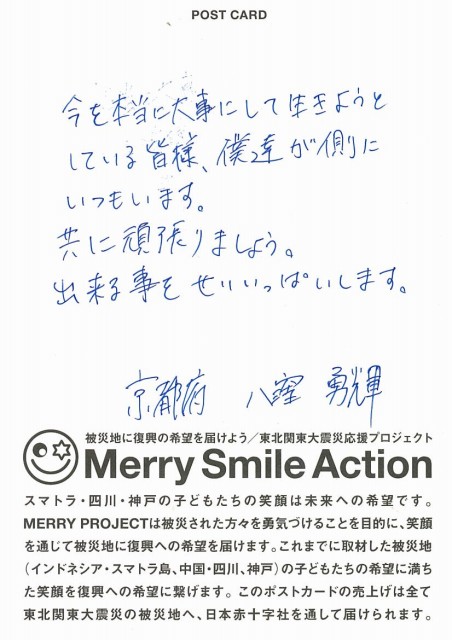 POST CARD
今を本当に大事にして生きようと
している皆様、僕達が側に
いつもいます。
共に頑張りましょう。
出来る事をせいいっぱいします。
京都府 八窪 勇輝
被災地に復興の希望を届けよう／東北関東大震災応援プロジェクト
Merry Smile Action
スマトラ・四川・神戸の子どもたちの笑顔は未来への希望です。
MERRY PROJECTは被災された方々を勇気づけることを目的に、笑顔
を通じて被災地に復興への希望を届けます。これまでに取材した被災地
（インドネシア・スマトラ島、中国・四川、神戸）の子どもたちの希望に満ち
た笑顔を復興への希望に繋げます。このポストカードの売上げは全て
東北関東大震災の被災地へ、日本赤十字社を通して届けられます。